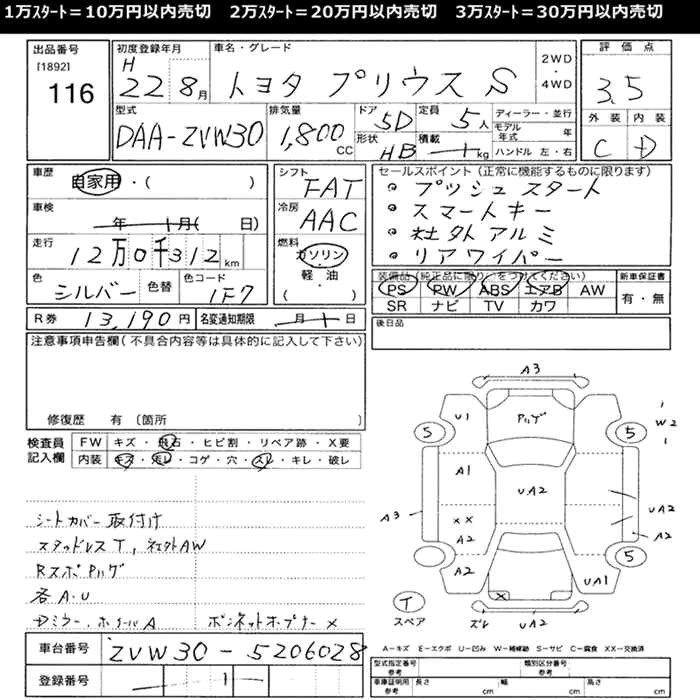 1万ｽﾀｰﾄ＝10万円以内売切　2万ｽﾀｰﾄ＝20万円以内売切　3万ｽﾀｰﾄ＝30万円以内売切
出品番号
[1892]
116
初度登録年月
H
22 8月
車名・グレード
トヨタ プリウス S
2WD
・
4WD
評価点
3.5
外装 内装
C D
型式
DAA-ZVW30
排気量
1,800 CC
ドア
5D
定員
5人
形状
HB
積載
kg
ディーラー・並行
モデル年式 年
ハンドル 左・右
車歴
自家用・( )
車検
年 月( 日)
走行
12万0千312 km
色
シルバー
色替
色コード
1F7
シフト
FAT
冷房
AAC
燃料
ガソリン
軽・油
( )
セールスポイント(正常に機能するものに限ります)
・プッシュスタート
・スマートキー
・社外アルミ
・リアワイパー
装備品(純正品に限り○をつけてください)
PS PW ABS エアB AW
SR ナビ TV カワ
新車保証書
有・無
R券 13,190円 名変通知期限 月 日
後日品
注意事項申告欄(不具合内容等は具体的に記入して下さい)
修復歴 有 〔箇所 〕
検査員
記入欄
FW キズ・飛石・ヒビ割・リペア跡・X要
内装 キズ・汚レ・コゲ・穴・スレ・キレ・破レ
シートカバー取付け
スタッドレスT, 社外AW
RスポPハゲ
各A・U
Dミラー、ホイールA ボンネットオープナーX
車台番号 ZVW30-5206028
登録番号
A3
U1
Pハゲ
5
5
W2
A1
UA2
XX
A2
A3
UA2
A2
A2
UA1
5
X
T
スペア
ズレ
UA2
A－キズ E－エクボ U－凹み W－補修跡 S－サビ C－腐食 XX－交換済
型式指定番号
参考
類別区分番号
参考
車庫証明用
参考
長さ cm
幅 cm
高さ cm